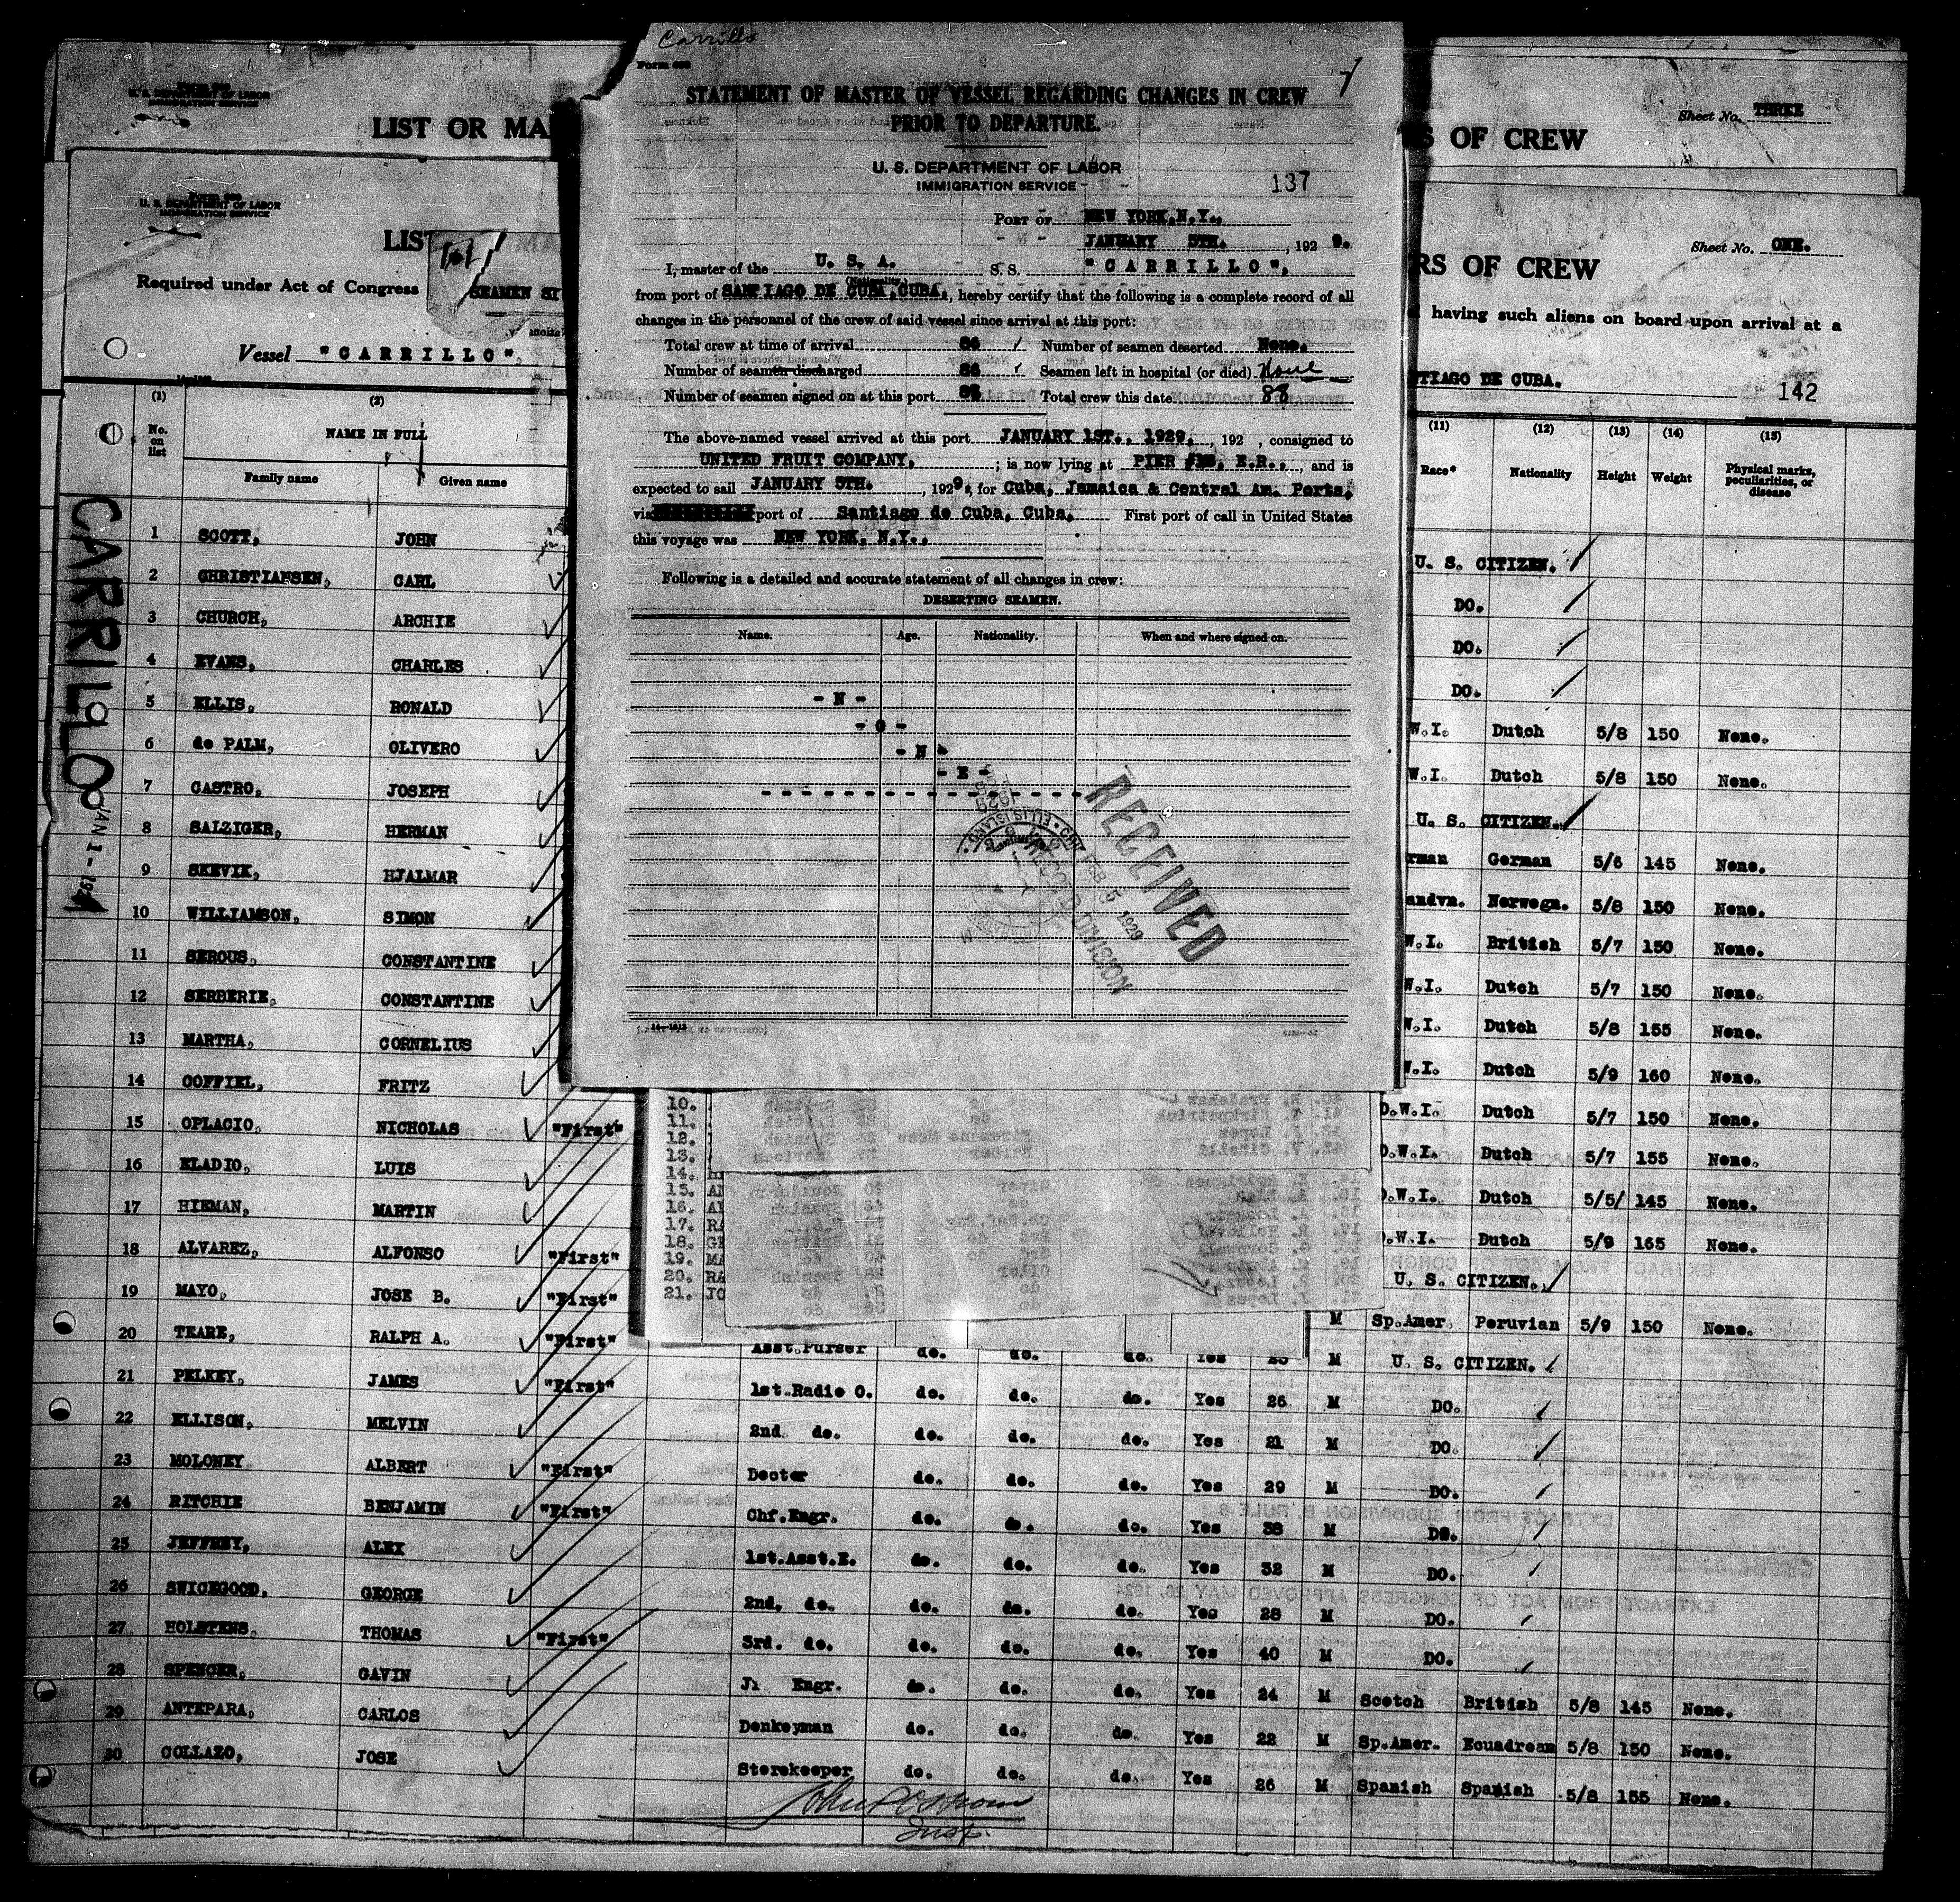 Carrillo
STATEMENT OF MASTER OF VESSEL REGARDING CHANGES IN CREW
PRIOR TO DEPARTURE.
U. S. DEPARTMENT OF LABOR
IMMIGRATION SERVICE
137
PORT OF NEW YORK, N.Y.,
JANUARY 5TH. , 192 9.
I, master of the U. S. A. S. S. "CARRILLO",
(Nationality)
from port of SANTIAGO DE CUBA, CUBA, hereby certify that the following is a complete record of all
changes in the personnel of the crew of said vessel since arrival at this port:
Total crew at time of arrival Number of seamen deserted None.
Number of seamen discharged Seamen left in hospital (or died) None
Number of seamen signed on at this port Total crew this date 88
The above-named vessel arrived at this port JANUARY 1ST., 1929. , 192 , consigned to
UNITED FRUIT COMPANY, ; is now lying at PIER E.R., , and is
expected to sail JANUARY 5TH. , 192 9, for Cuba, Jamaica & Central Am. Ports,
via port of Santiago de Cuba, Cuba, First port of call in United States
this voyage was NEW YORK, N.Y.,
Following is a detailed and accurate statement of all changes in crew:
DESERTING SEAMEN.
Name. Age. Nationality. When and where signed on.
- N -
- O -
- N -
- E -
RECEIVED
FEB 5 1929
RECORD DIVISION
ELLIS ISLAND
U. S. DEPARTMENT OF LABOR
IMMIGRATION SERVICE
LIST OR MA
S OF CREW
Sheet No. THREE
U. S. DEPARTMENT OF LABOR
IMMIGRATION SERVICE
LIST
RS OF CREW
Sheet No. ONE.
Required under Act of Congress
SEAMEN SI
having such aliens on board upon arrival at a
Vessel "CARRILLO",
TIAGO DE CUBA.
142
CARRILLO
JAN 1 - 1929
(1) (2) (11) (12) (13) (14) (15)
No. on list NAME IN FULL Race* Nationality Height Weight Physical marks, peculiarities, or disease
Family name Given name
1 SCOTT, JOHN U. S. CITIZEN.
2 CHRISTIANSEN, CARL DO.
3 CHURCH, ARCHIE DO.
4 EVANS, CHARLES DO.
5 ELLIS, RONALD W.I. Dutch 5/8 150 None.
6 de PALM, OLIVERO W.I. Dutch 5/8 150 None.
7 CASTRO, JOSEPH U. S. CITIZEN.
8 SALZIGER, HERMAN rman German 5/6 145 None.
9 SKEVIK, HJALMAR andvn. Norwegn. 5/8 150 None.
10 WILLIAMSON, SIMON W.I. British 5/7 150 None.
11 SEROUS, CONSTANTINE W.I. Dutch 5/7 150 None.
12 SERBERIE, CONSTANTINE W.I. Dutch 5/8 155 None.
13 MARTHA, CORNELIUS W.I. Dutch 5/9 160 None.
14 COFFIEL, FRITZ D.W.I. Dutch 5/7 150 None.
15 OPLACIO, NICHOLAS "First" D.W.I. Dutch 5/7 155 None.
16 ELADIO, LUIS D.W.I. Dutch 5/5/ 145 None.
17 HIEMAN, MARTIN D.W.I. Dutch 5/9 165 None.
18 ALVAREZ, ALFONSO "First" U. S. CITIZEN.
19 MAYO, JOSE B. "First" M Sp.Amer. Peruvian 5/9 150 None.
20 TEARE, RALPH A. "First" Asst.Purser do. do. do. Yes M U. S. CITIZEN.
21 PELKEY, JAMES "First" 1st.Radio O. do. do. do. Yes 26 M DO.
22 ELLISON, MELVIN 2nd. do. do. do. do. Yes 21 M DO.
23 MOLONEY ALBERT "First" Doctor do. do. do. Yes 29 M DO.
24 RITCHIE BENJAMIN "First" Chf.Engr. do. do. do. Yes 38 M DO.
25 JEFFREY, ALEX 1st.Asst.E. do. do. do. Yes 32 M DO.
26 SWICEGOOD, GEORGE 2nd. do. do. do. do. Yes 28 M DO.
27 HOLSTENS, THOMAS "First" 3rd. do. do. do. do. Yes 40 M DO.
28 SPENCER, GAVIN Engr. do. do. do. Yes 24 M Scotch British 5/8 145 None.
29 ANTEPARA, CARLOS Donkeyman do. do. do. Yes 22 M Sp.Amer. Ecuadrean 5/8 150 None.
30 COLLAZO, JOSE Storekeeper do. do. do. Yes 26 M Spanish Spanish 5/8 155 None.
10.
11.
12.
13.
14.
15. AN
16. AL
17. RA
18. GE
19. MA
20. RA
21. JO
Insp.